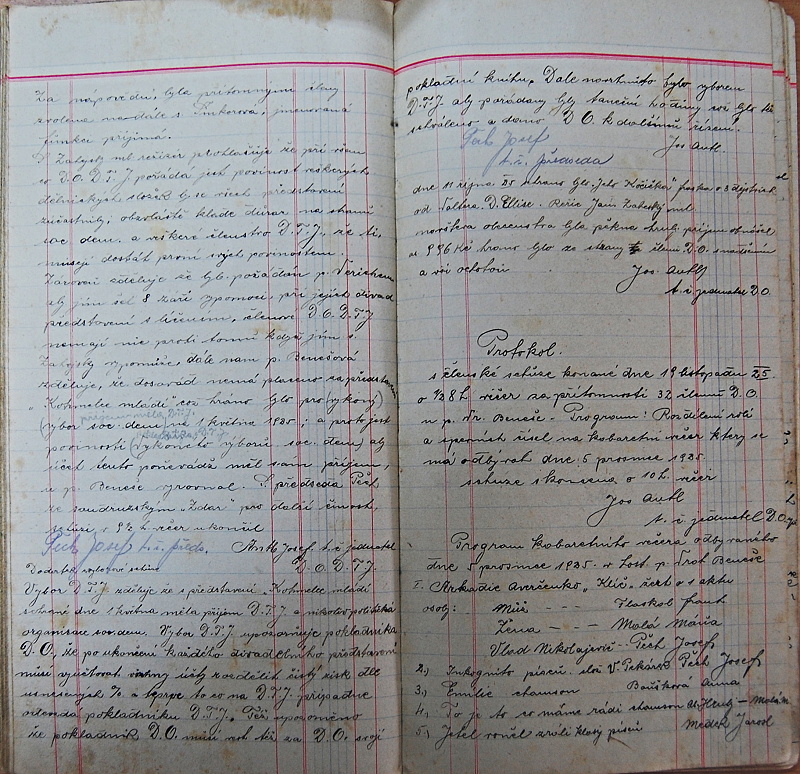 Za nápovědu, byla přítomnými členy
zvolena na dále s. Finkerová, jmenovaná
funkci přijímá.
S. Zabystý ml. režisér prohlašuje že při všem
co D.O.D.T.J. pořádá jest povinností veškerých
dělnických složek by se všech představení
zúčastnily, obzvláště klade důraz na stranu
soc. dem. a veškeré členstvo D.T.J., že ti
musejí dostát první svých povinnostem.
Zároveň sděluje že byl požádán p.
aby jim šel 8 září vypomoci, při jejich divad.
představení s líčením, členové D.O.D.T.J.
nemají nic proti tomu když jim s.
Zabystý vypomůže, dále nám p. Benešová
sděluje, že dosavád nemá placeno za představení
"Kohnelce mládí" což hráno bylo pro výkoný
příjem měla D.T.J.
(výbor soc. dem.) na 1 května 1925; a proto jest
povinností (výkoného výboru soc. dem.) aby
účet tento poněvádž měl sam příjem,
u p. Beneše vyrovnal. S. předseda Pech
se soudružským "Zdar" pro další činost,
schůzi v 9½ h. večer ukončil
Pech Josef t.č. předs. Antl Josef t.č. jednatel
Dodatek výborové schůze D.O.D.T.J.
Výbor D.T.J. sděluje že s představení "Kohnelce mládí"
sehrané dne 1 května měla příjem D.T.J. a nikoliv politická
organisace soc. dem. Výbor D.T.J. upozorňuje pokladníka
D.O. že po ukončení každého divadelního představení
musí vyúčtovat účty rozdělit čistý zisk dle
usnesených % a teprve to co na D.T.J. připadne
odevzdá pokladníku D.T.J. Též upozorněno
že pokladník D.O. musí vést též za D.O. svojí
pokladní knihu. Dále navrhnuto bylo výborem
D.T.J. aby pořádány byly taneční hodiny což bylo
schváleno a dáno D.O. k dalšímu řízení.
Pech Josef Jos Antl.
t.č. předseda
dne 11 října 25 sehráno bylo "Jeho Kočička" fraška o 3 dějstvích
od Valtra D. Ellise. Režie Jan Zabystý ml.
návštěva obecenstva byla pěkná hrubý příjem obnášel
a 996 Kč hráno bylo ze strany členů D.O. snaživě
a vší ochotou Jos. Antl
t.č. jednatel D.O.
Protokol.
s členské schůze konané dne 19 listopadu 25
o ½8 h. večer za přítomnosti 32 členů D.O.
u p. Vr. Beneše. Program: Rozdělení rolí
a sporých čísel na kabaretní večer který se
má odbývat dne 5 prosince 1925.
schůze skončena o 10 h. večer
Jos Antl
t.č. jednatel D.O.
Program kabaretního večera odbývaného
dne 5 prosince 1925. v host. p. Vrat. Beneše
I. Arkadic Averčenko "Klíč" žert o 1 aktu
osoby: Muž - - - Flaskal Frant
Žena - - - Malá Mária
Vlad Nikolajevič - Pech Josef
2.) Inkognito píseň. slož V. Pekárek Pech Josef
3.) Emilie chanson Boušková Anna
4.) To je to co máme rádi chanson - Malá M
5.) Jetel voněl zrálí klasy píseň Medek Jarosl